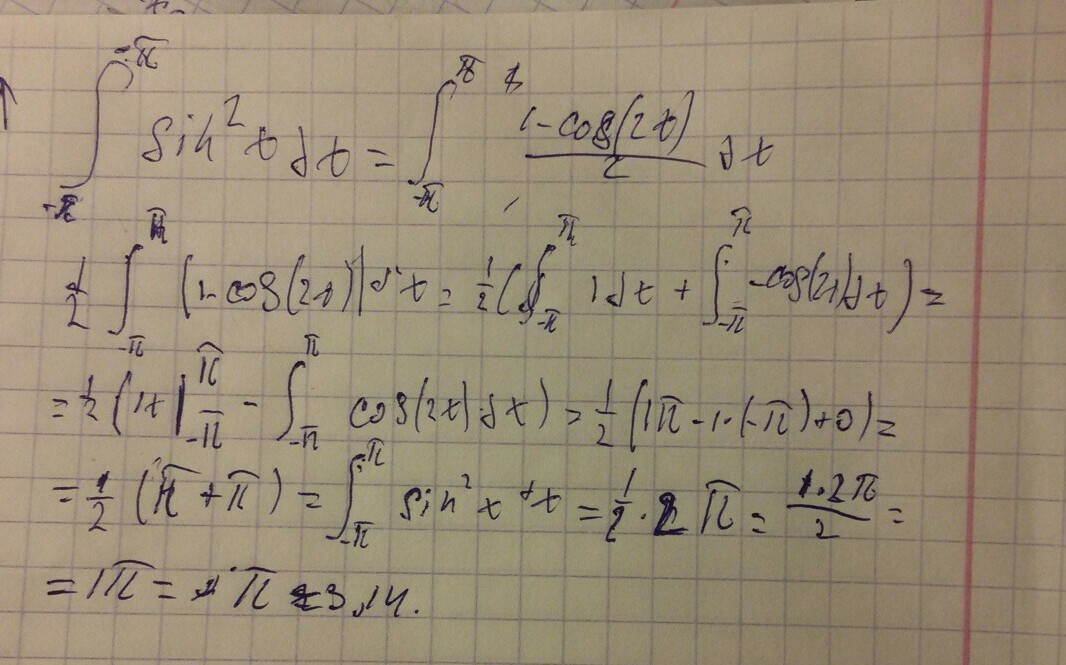 ∫_{-π}^{-π} sin² t dt = ∫_{-π}^{π} (1 - cos(2t))/2 dt
1/2 ∫_{-π}^{π} (1 - cos(2t)) dt = 1/2 (∫_{-π}^{π} 1 dt + ∫_{-π}^{π} -cos(2t) dt) =
= 1/2 (1t |_{-π}^{π} - ∫_{-π}^{π} cos(2t) dt) = 1/2 (1π - 1·(-π) + 0) =
= 1/2 (π + π) = ∫_{-π}^{π} sin² t dt = 1/2 · 2π = 1·2π/2 =
= 1π = π ≈ 3,14.